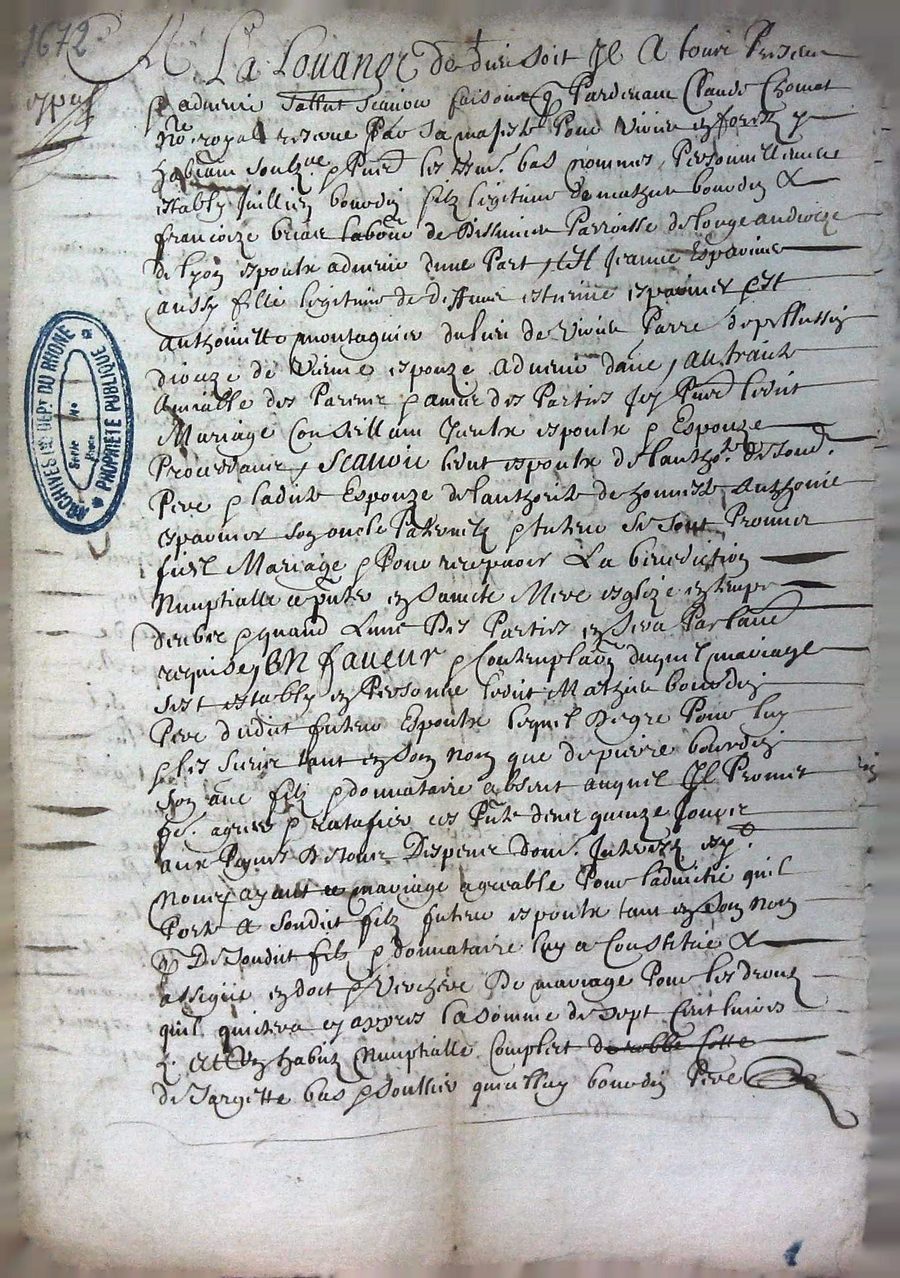 1672
A La Louange de dieu soit Il A tous Presens
& advenir Sallut Scavoir faisons q Pardevant Claude Chomat
Nre royal reserve Par Sa majeste Pour Virieu en forestz &
habitant soulzne & Puis les tesm. bas nommes, Personnellement
estably Jullien bourdin filz legitime de mathieu bourdin &
francoize briat labour de Parroisse de longe au dioceze
de Lyon espoulx advenir dune Part, et Jeanne Espavier
aussy fille legitime de deffunt estienne espavier & est
anthoinette montagnier du lieu de Virieu Parre de pellussin
dioceze de Vienne espouze advenir dauc, au traicte
Amiable des Parens & amis des Parties Jcy Pnt ledit
Mariage Conseillant Jceulx espoulx & Espouze
Procedant, Scavoir ledit espoulx de lautho.te de sond.
Pere & ladite Espouze de lauthorite de honneste Anthoine
espavier son oncle Paternelz & tuteur se sont Promis
fidel Mariage & Pour recepvoir La benediction
Nuptialle a en Saincte Mere esglize en temps
deube & quand Lune Des Parties en sera Par lautre
requise, EN faveur & Contemplaon duquel mariage
sest estably en Personne ledit Mathieu bourdin
Pere dudit futeur Espoulx lequel De gre Pour luy
& les siens tant en son nom que de pierre bourdin
son aisne filz & donnataire absent auquel Il Promet
fe. agreer & ratafier ces Pnte dans quinze Jours
aux Peynes De tous Despens dom. Jnterestz
ayant ce mariage agreable Pour ladmictie quil
Porte A Sondit filz futeur espoulx tant en son nom
q De sondit filz & donnataire luy a Constitue &
assigne en doct & Verchere De mariage Pour les droitz
quil quictera cy appres la somme de sept cent livres
& et Un habitz Nuptialle Complect de robbe Cotte
de sargette bas & soullier quiceluy bourdin Pere
ARCHIVES DU DEPT DU RHONE
PROPRIETE PUBLIQUE
Serie
No